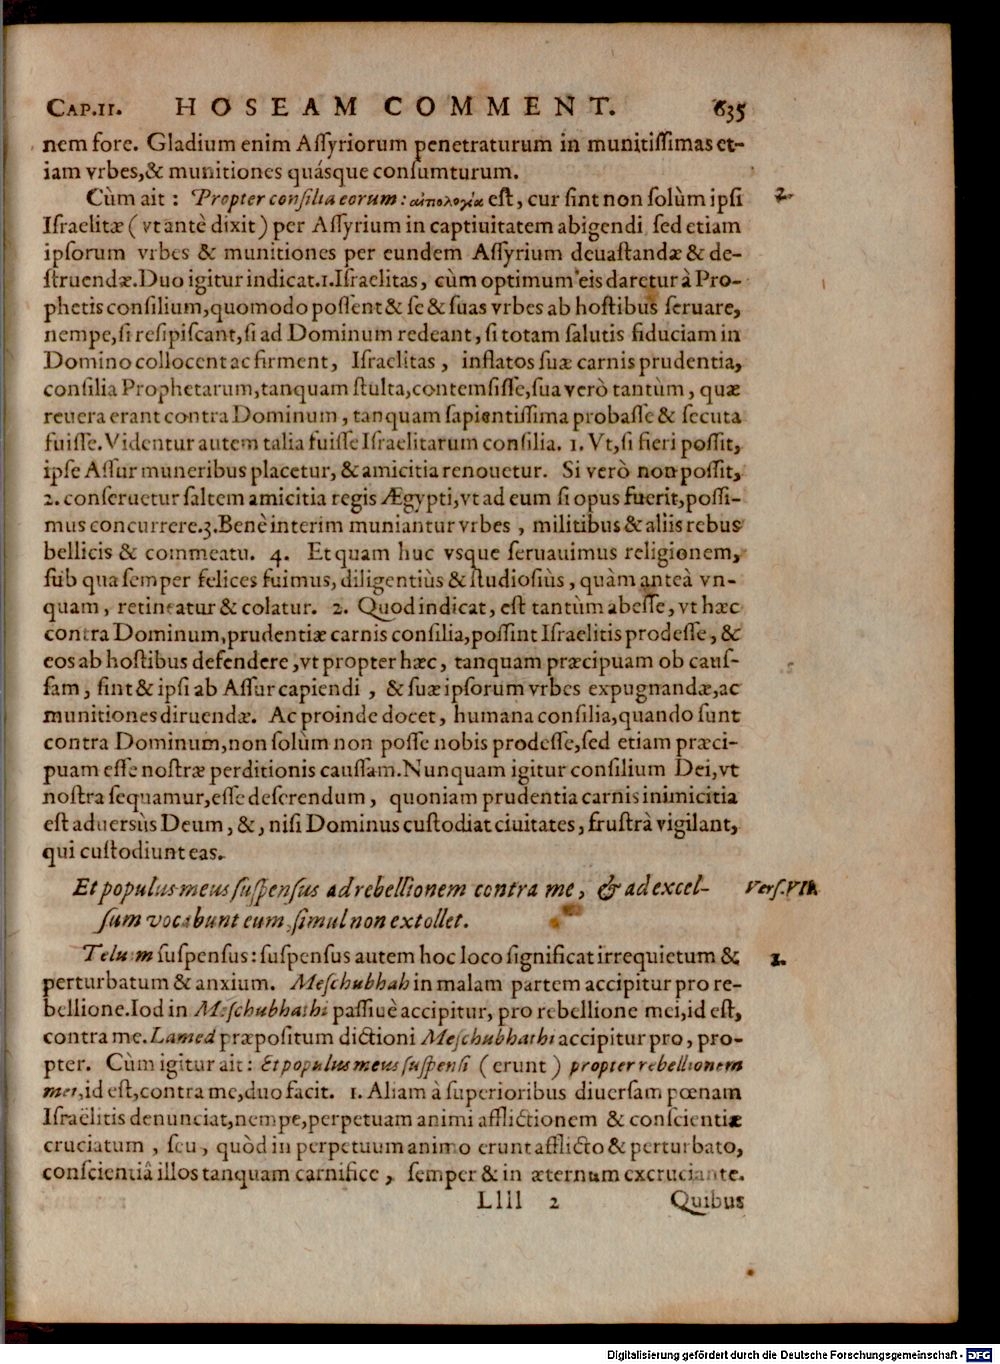 CAP.II. HOSEAM COMMENT. 635
nem fore. Gladium enim Aſſyriorum penetraturum in munitiſſimas et-
iam vrbes,& munitiones quásque conſumturum.
Cùm ait : Propter conſilia eorum: ἀπολογία eſt, cur ſint non ſolùm ipſi 2.
Iſraelitæ ( vt antè dixit ) per Aſſyrium in captiuitatem abigendi ſed etiam
ipſorum vrbes & munitiones per eundem Aſſyrium deuaſtandæ & de-
ſtruendæ. Duo igitur indicat. 1. Iſraelitas, cùm optimum eis daretur à Pro-
phetis conſilium, quomodo poſſent & ſe & ſuas vrbes ab hoſtibus ſeruare,
nempe, ſi reſipiſcant, ſi ad Dominum redeant, ſi totam ſalutis fiduciam in
Domino collocent ac firment, Iſraelitas, inflatos ſuæ carnis prudentia,
conſilia Prophetarum, tanquam ſtulta, contemſiſſe, ſua verò tantùm, quæ
reuera erant contra Dominum, tanquam ſapientiſſima probaſſe & ſecuta
fuiſſe. Videntur autem talia fuiſſe Iſraelitarum conſilia. 1. Vt, ſi fieri poſſit,
ipſe Aſſur muneribus placetur, & amicitia renouetur. Si verò non poſſit,
2. conſeruetur ſaltem amicitia regis Ægypti, vt ad eum ſi opus fuerit, poſſi-
mus concurrere. 3. Benè interim muniantur vrbes, militibus & aliis rebus
bellicis & commeatu. 4. Et quam huc vsque ſeruauimus religionem,
ſub qua ſemper felices fuimus, diligentiùs & ſtudioſiùs, quàm anteà vn-
quam, retineatur & colatur. 2. Quod indicat, eſt tantùm abeſſe, vt hæc
contra Dominum, prudentiæ carnis conſilia, poſſint Iſraelitis prodeſſe, &
eos ab hoſtibus defendere, vt propter hæc, tanquam præcipuam ob cauſ-
ſam, ſint & ipſi ab Aſſur capiendi, & ſuæ ipſorum vrbes expugnandæ, ac
munitiones diruendæ. Ac proinde docet, humana conſilia, quando ſunt
contra Dominum, non ſolùm non poſſe nobis prodeſſe, ſed etiam præci-
puam eſſe noſtræ perditionis cauſſam. Nunquam igitur conſilium Dei, vt
noſtra ſequamur, eſſe deſerendum, quoniam prudentia carnis inimicitia
eſt aduersùs Deum, &, niſi Dominus cuſtodiat ciuitates, fruſtrà vigilant,
qui cuſtodiunt eas.
Et populus meus ſuſpenſus ad rebellionem contra me, & ad excel- Verſ. VII.
ſum vocabunt eum, ſimul non extollet.
Telu m ſuſpenſus: ſuſpenſus autem hoc loco ſignificat irrequietum & 1.
perturbatum & anxium. Meſchubhah in malam partem accipitur pro re-
bellione. Iod in Meſchubhathi paſſiuè accipitur, pro rebellione mei, id eſt,
contra me. Lamed præpoſitum dictioni Meſchubhathi accipitur pro, pro-
pter. Cùm igitur ait: Et populus meus ſuſpenſi ( erunt ) propter rebellionem
mei, id eſt, contra me, duo facit. 1. Aliam à ſuperioribus diuerſam pœnam
Iſraëlitis denunciat, nempe, perpetuam animi afflictionem & conſcientiæ
cruciatum, ſeu, quòd in perpetuum animo erunt afflicto & perturbato,
conſcientiâ illos tanquam carnifice, ſemper & in æternum excruciante.
Llll 2 Quibus
Digitalisierung gefördert durch die Deutsche Forschungsgemeinschaft - DFG